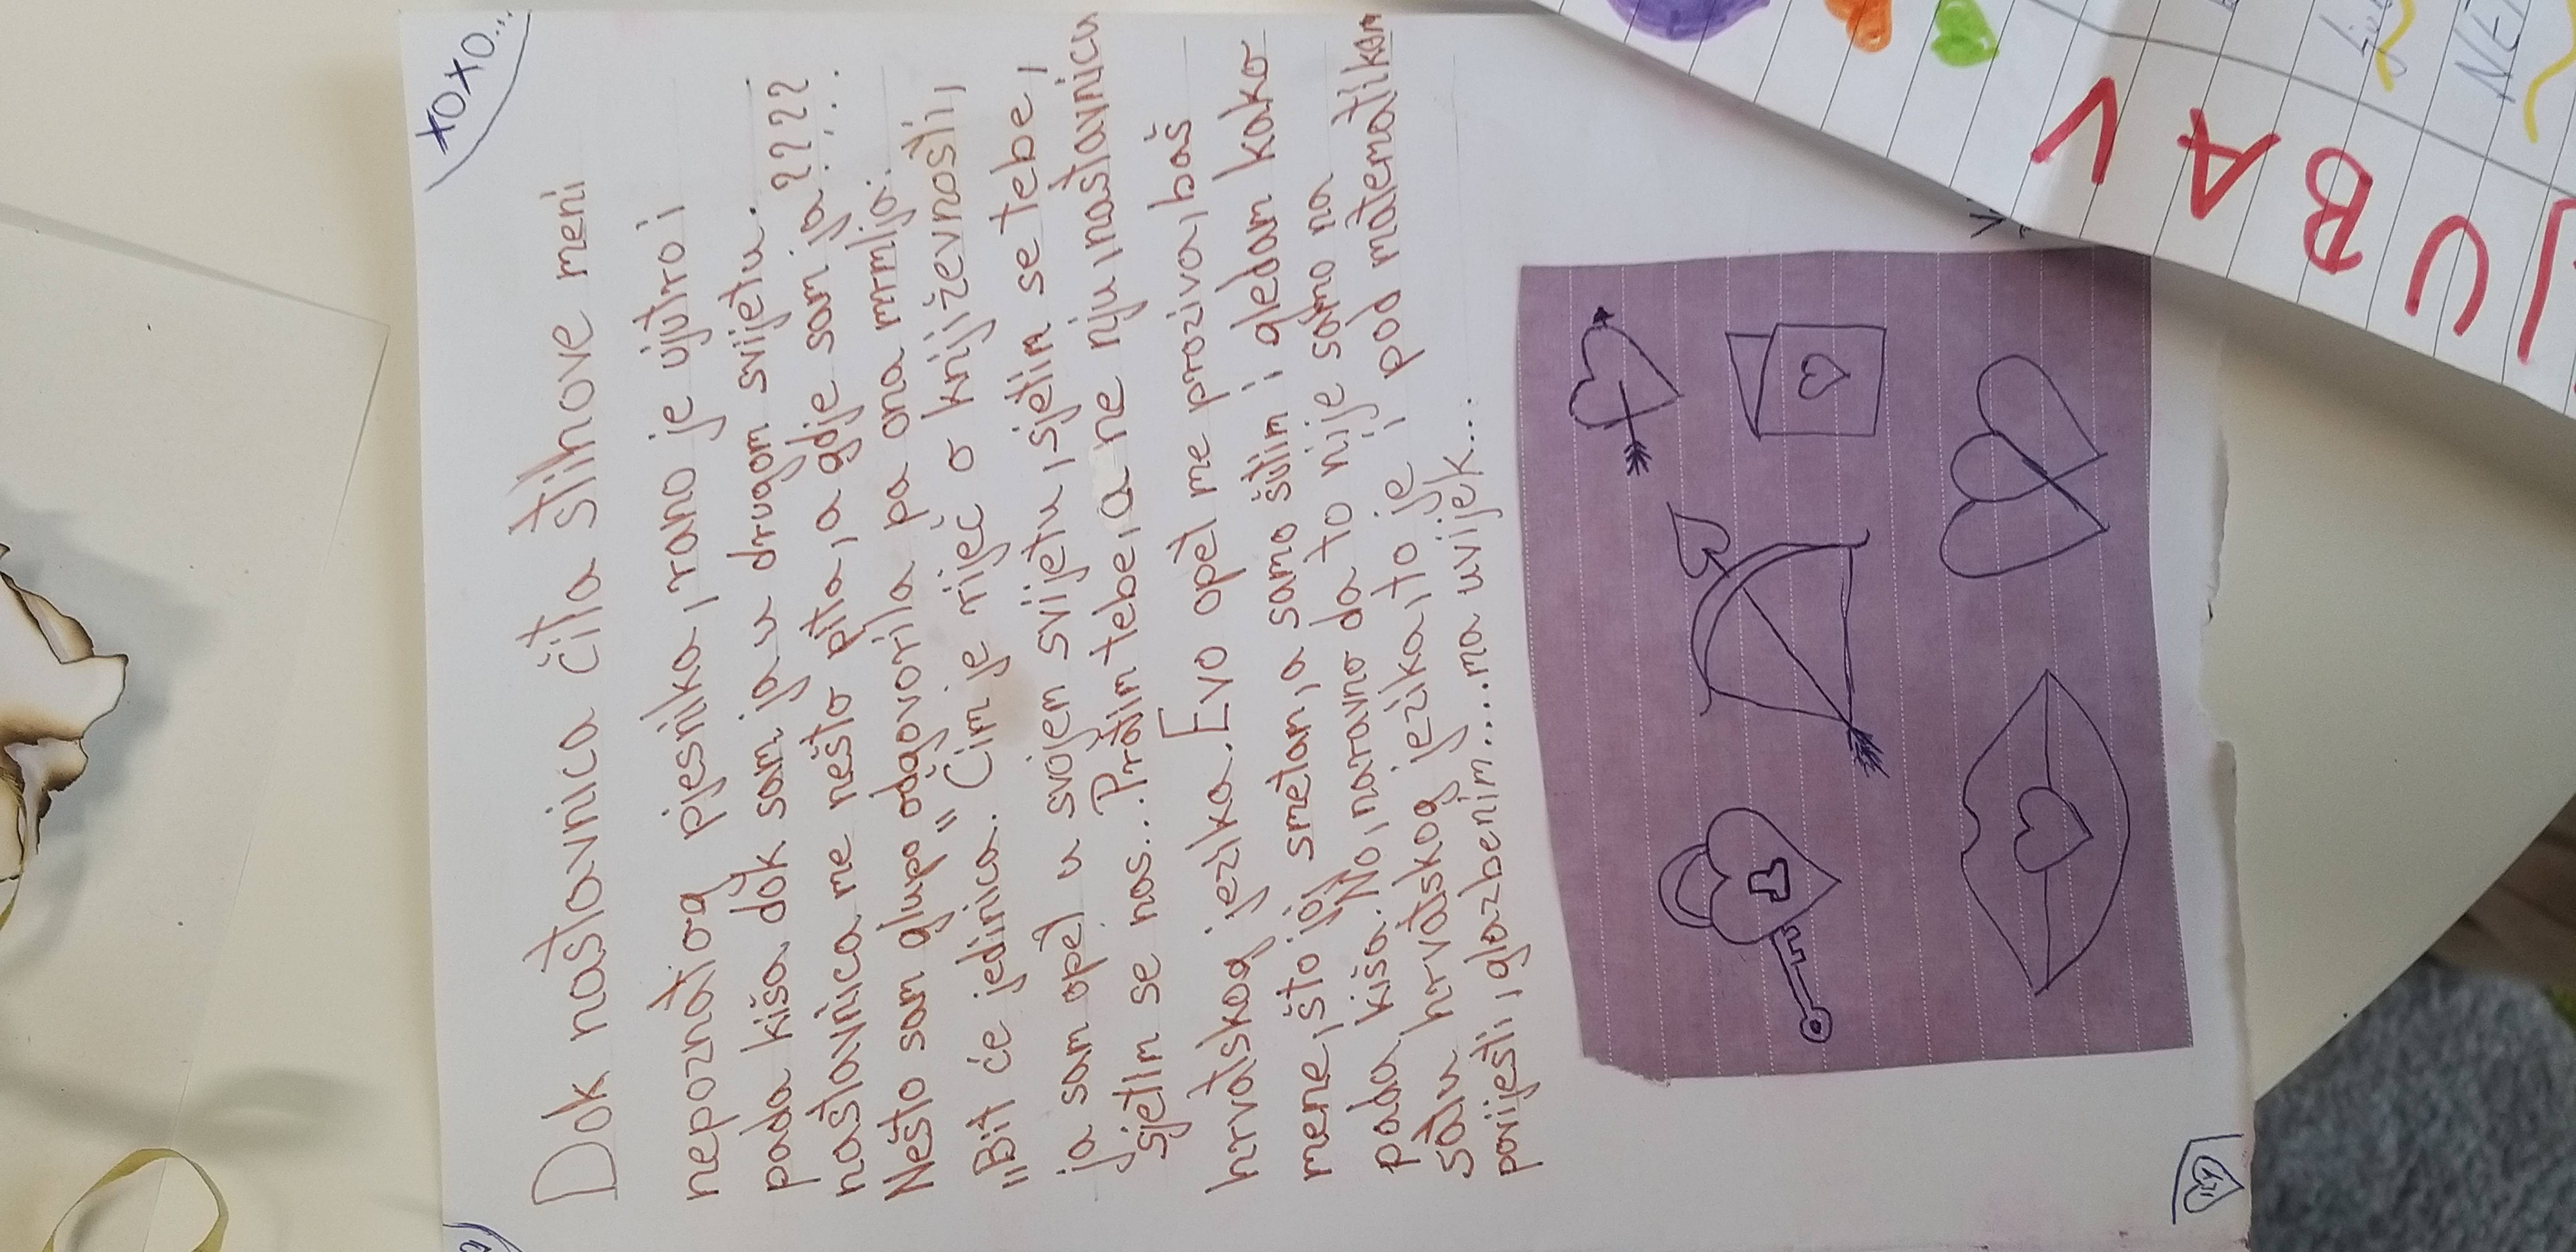 XOXO...
Dok nastavnica čita stihove meni
nepoznatog pjesnika, rano je ujutro i
pada kiša dok sam ja u drugom svijetu.
nastavnica me nešto pita, a gdje sam ja????
Nešto sam glupo odgovorila pa ona mrmlja:
"Bit će jedinica." Čim je riječ o književnosti,
ja sam opet u svojem svijetu, sjetim se tebe,
sjetim se nas... Pratim tebe, a ne nju, nastavnicu
hrvatskog jezika. Evo opet me proziva, baš
mene, što joj smetam, a samo šutim i gledam kako
pada kiša. No, naravno da to nije samo na
satu hrvatskog jezika, to je i pod matematikom
povijesti, glazbenim.....ma uvijek...
JUBAV